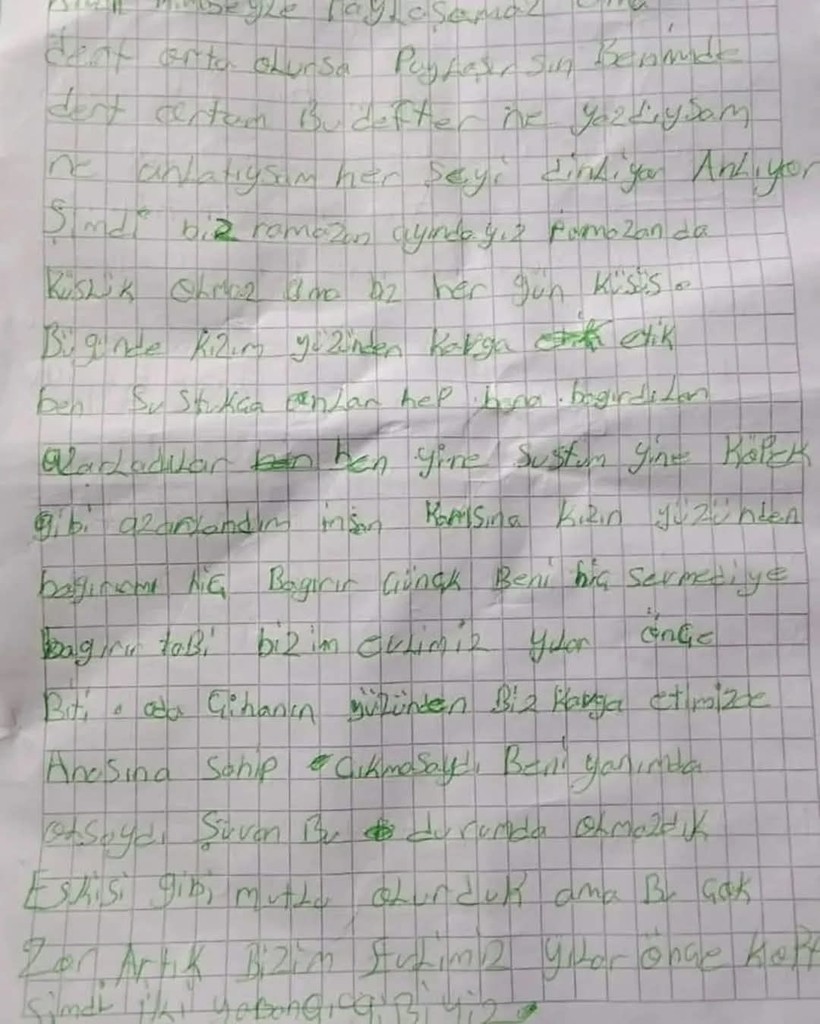 kimseyle Paylaşamaz ama
dert orta olursa Paylaşır sın Benimde
dert ortam Bu defter ne yazdıysam
ne anlatıysam her Şeyi dinliyor Anlıyor
Şimdi biz ramazan ayındayız Ramazan da
Küslük Olmaz ama biz her gün Küsüs.
Bu günde kızım yüzünden Kavga etik
ben Su Stukca onlar hep bana bagırdılar
azarladılar ben yine Sustum yine Köpek
gibi azarlandım insan Karısına Kızın yüzünden
bagırımı hiç Bagırır Günçk Beni hiç Sevmediye
bagırır taBi bizim evlimiz yılar önçe
Biti. oda Cihanın yüzünden Biz Kavga etimizde
Anasına Sahip Cıkmasaydı Beni yanımda
olsaydı Şuvan Bu durumda Olmazdık
Eskisi gibi mutlu olurduk ama Bu Çok
Zor Artık Bizim Evlimiz Yılar önçe Kopt
Şimdi iki yabançı giBi yiz.